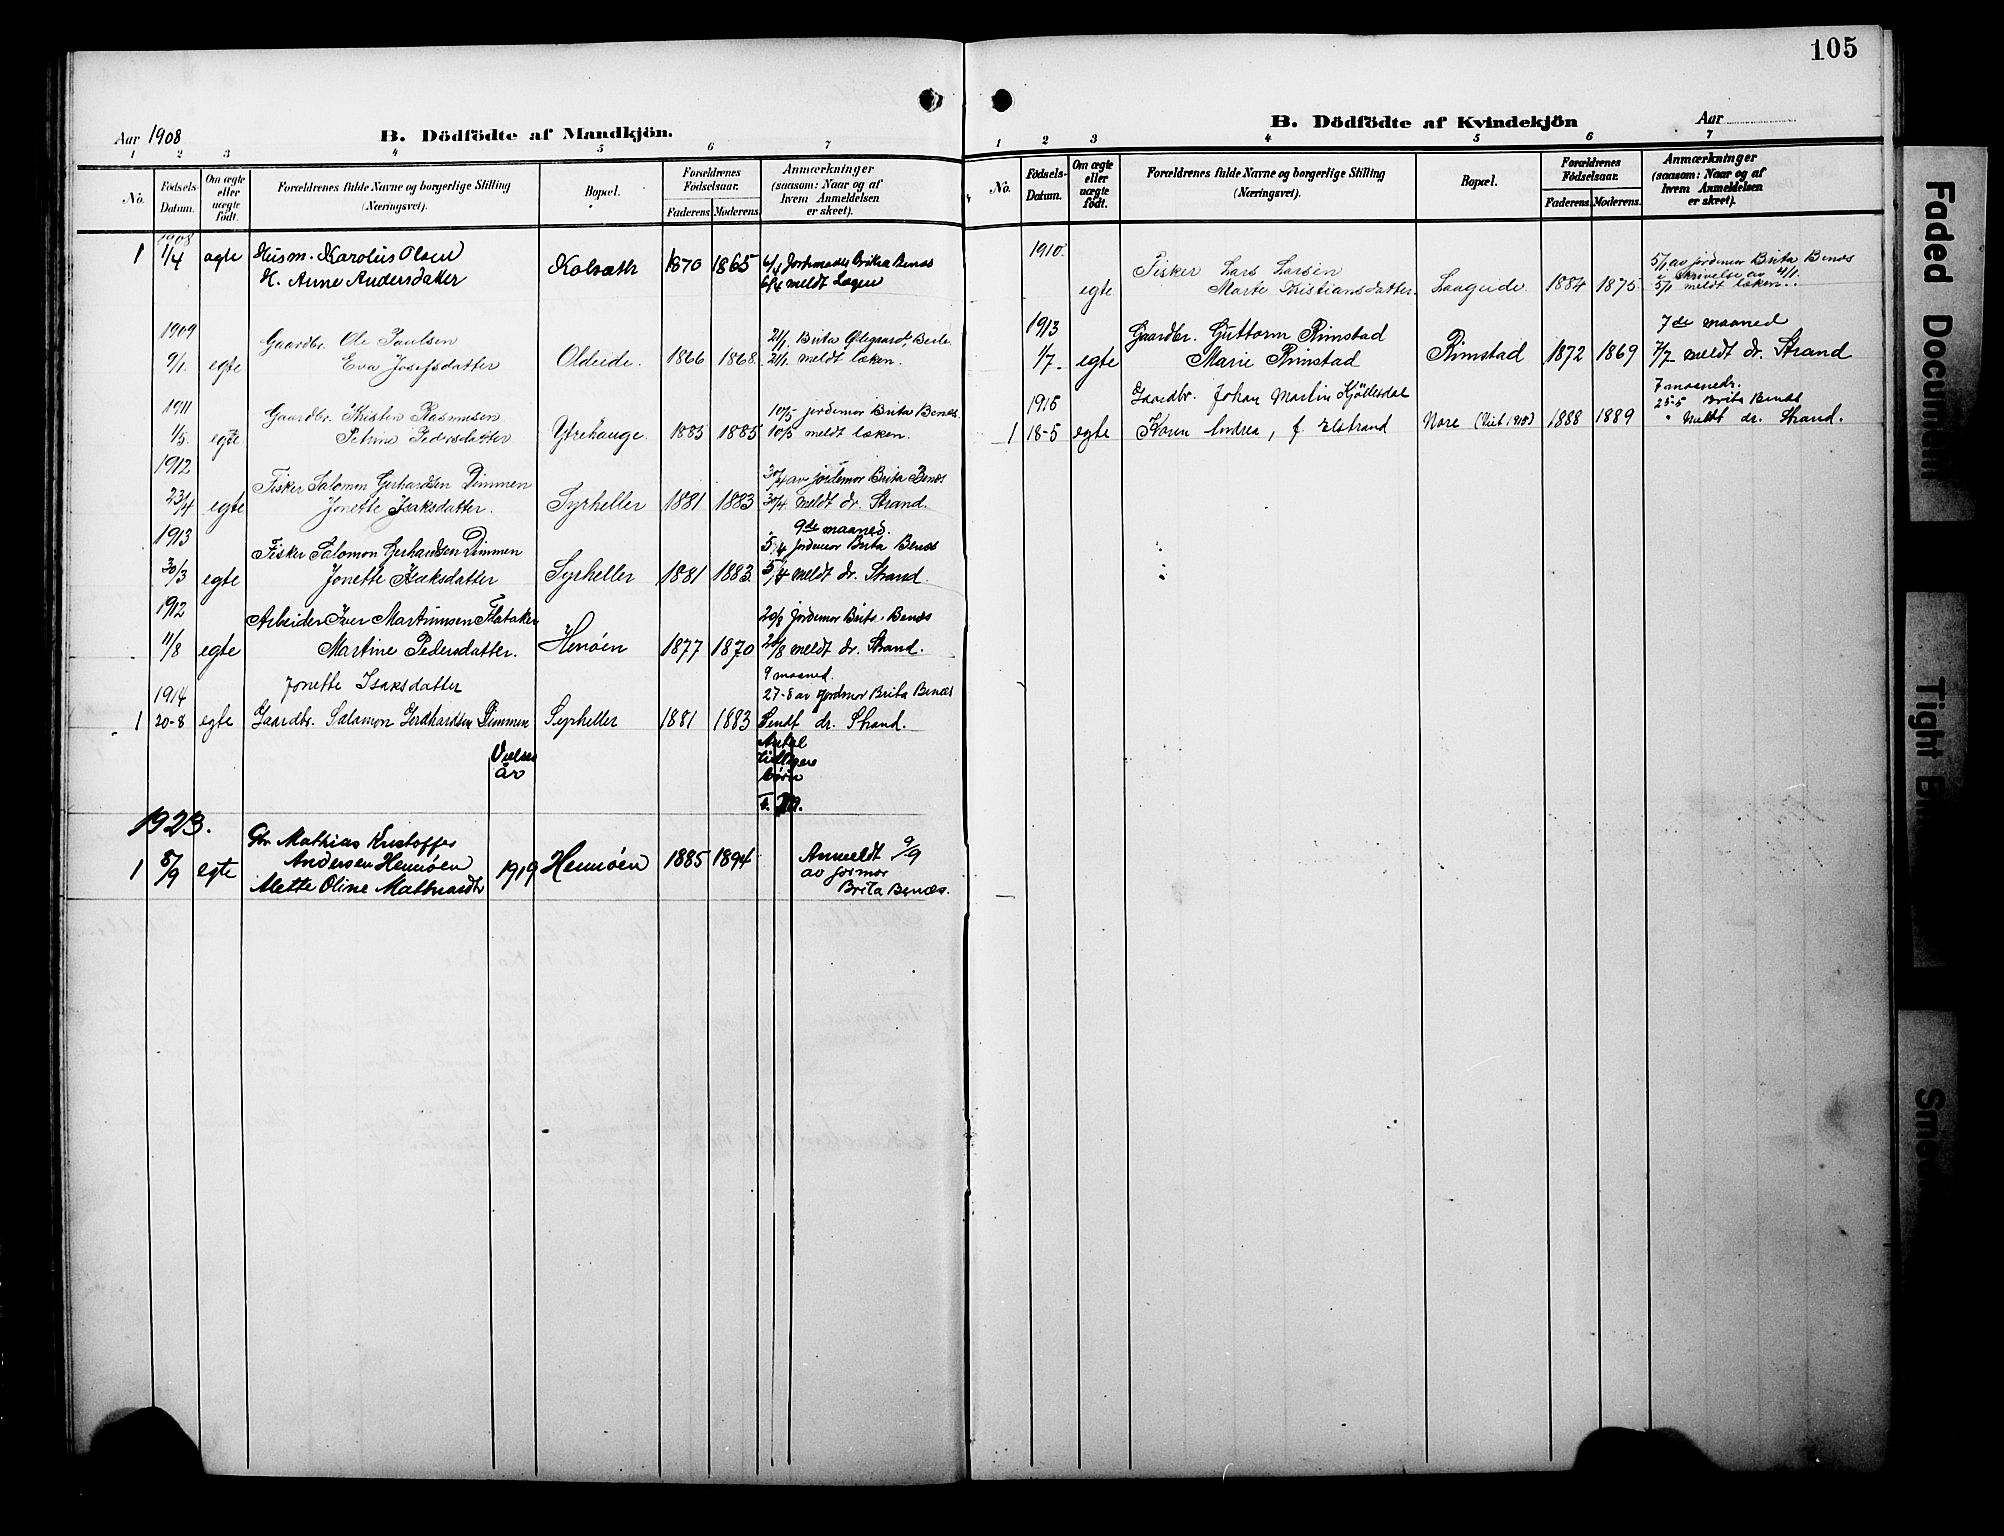 105
Aar 1908
B. Dödfödte af Mandkjön.
1 2 3 4 5 6 7
No.
Födsels-Datum.
Om ægte eller uægte födt.
Forældrenes fulde Navne og borgerlige Stilling (Næringsvei).
Bopæl.
Forældrenes Födselsaar.
Faderens Moderens
Anmærkninger (saasom: Naar og af hvem Anmeldelsen er skeet).
1908
1 1/4 ægte Husm. Karolius Olsen
H. Anne Andersdatter Kolsæth 1870 1865 6/4 Jordmoder Brita Benæs
6/4 meldt Lægen
1909
Gaardbr. Ole Paulsen 21/1 Brita
9/1. egte Eva Josefsdatter Oldeide. 1866 1868. 21/1. meldt læken.
1911
Gaardbr. Kristen Rasmussen 10/5 jordemor Brita Benæs.
1/5. egte Petrine Pedersdatter Ytrehauge. 1883 1885 10/5 meldt læken.
1912
Fisker Salomon Gerhardsen Dimmen 30/4 av jordemor Brita Benæs
23/4 egte Jonette Isaksdatter. Syrheller 1881 1883 30/4 meldt dr. Strand.
1913
9de maaned.
Fisker Salomon Gerhardsen Dimmen 5/4 Jordemor Brita Benæs
30/3 egte Jonette Isaksdatter Syrheller 1881 1883. 5/4 meldt dr. Strand.
1912
Arbeider Iver Martinusen Flataker 20/8 Jordemor Brita Benæs
11/8 egte Martine Pedersdatter. Henöen 1877 1870 20/8 meldt dr. Strand.
9 maaned.
1914
Jonette Isaksdatter 27-8 av Jordmor Brita Benæs
1 20-8 egte Gaardbr. Salamon Gerdhardsen Dimmen Syrheller 1881 1883 Sendt dr. Strand.
Vielses år
Antal tidligere børn
1923.
1 5/9 egte Gbr Mathias Kristoffer
Andersen Hennöen
Alette Oline 1919 Hennöen 1885 1894 Anmeldt 9/9
av jormor
Brita Benæs.
B. Dödfödte af Kvindekjön
Aar
1 2 3 4 5 6 7
No.
Födsels-Datum.
Om ægte eller uægte födt.
Forældrenes fulde Navne og borgerlige Stilling (Næringsvei).
Bopæl.
Forældrenes Födselsaar.
Faderens. Moderens.
Anmærkninger (saasom: Naar og af hvem Anmeldelsen er skeet).
1910.
Fisker Lars Larsen 5/1 av jordemor Brita Benæs
i skrivelse av 4/1.
egte Marte Kristiansdatter. Laageide. 1884 1875. 5/1 meldt læken.
1913
Gaardbr. Guttorm Rimstad 7de maaned
1/7. egte Marie Rimstad Rimstad 1872 1869 7/7 meldt dr. Strand
1915
Gaardbr. Johan Martin Kjöllesdal 7 maaneder.
25-5 Brita Benæs
1 18-5 egte Karen Andrea, f. Elstrand Nore 1888 1889 " Meldt dr. Strand.
Faded Document
Tight Bin
Sm